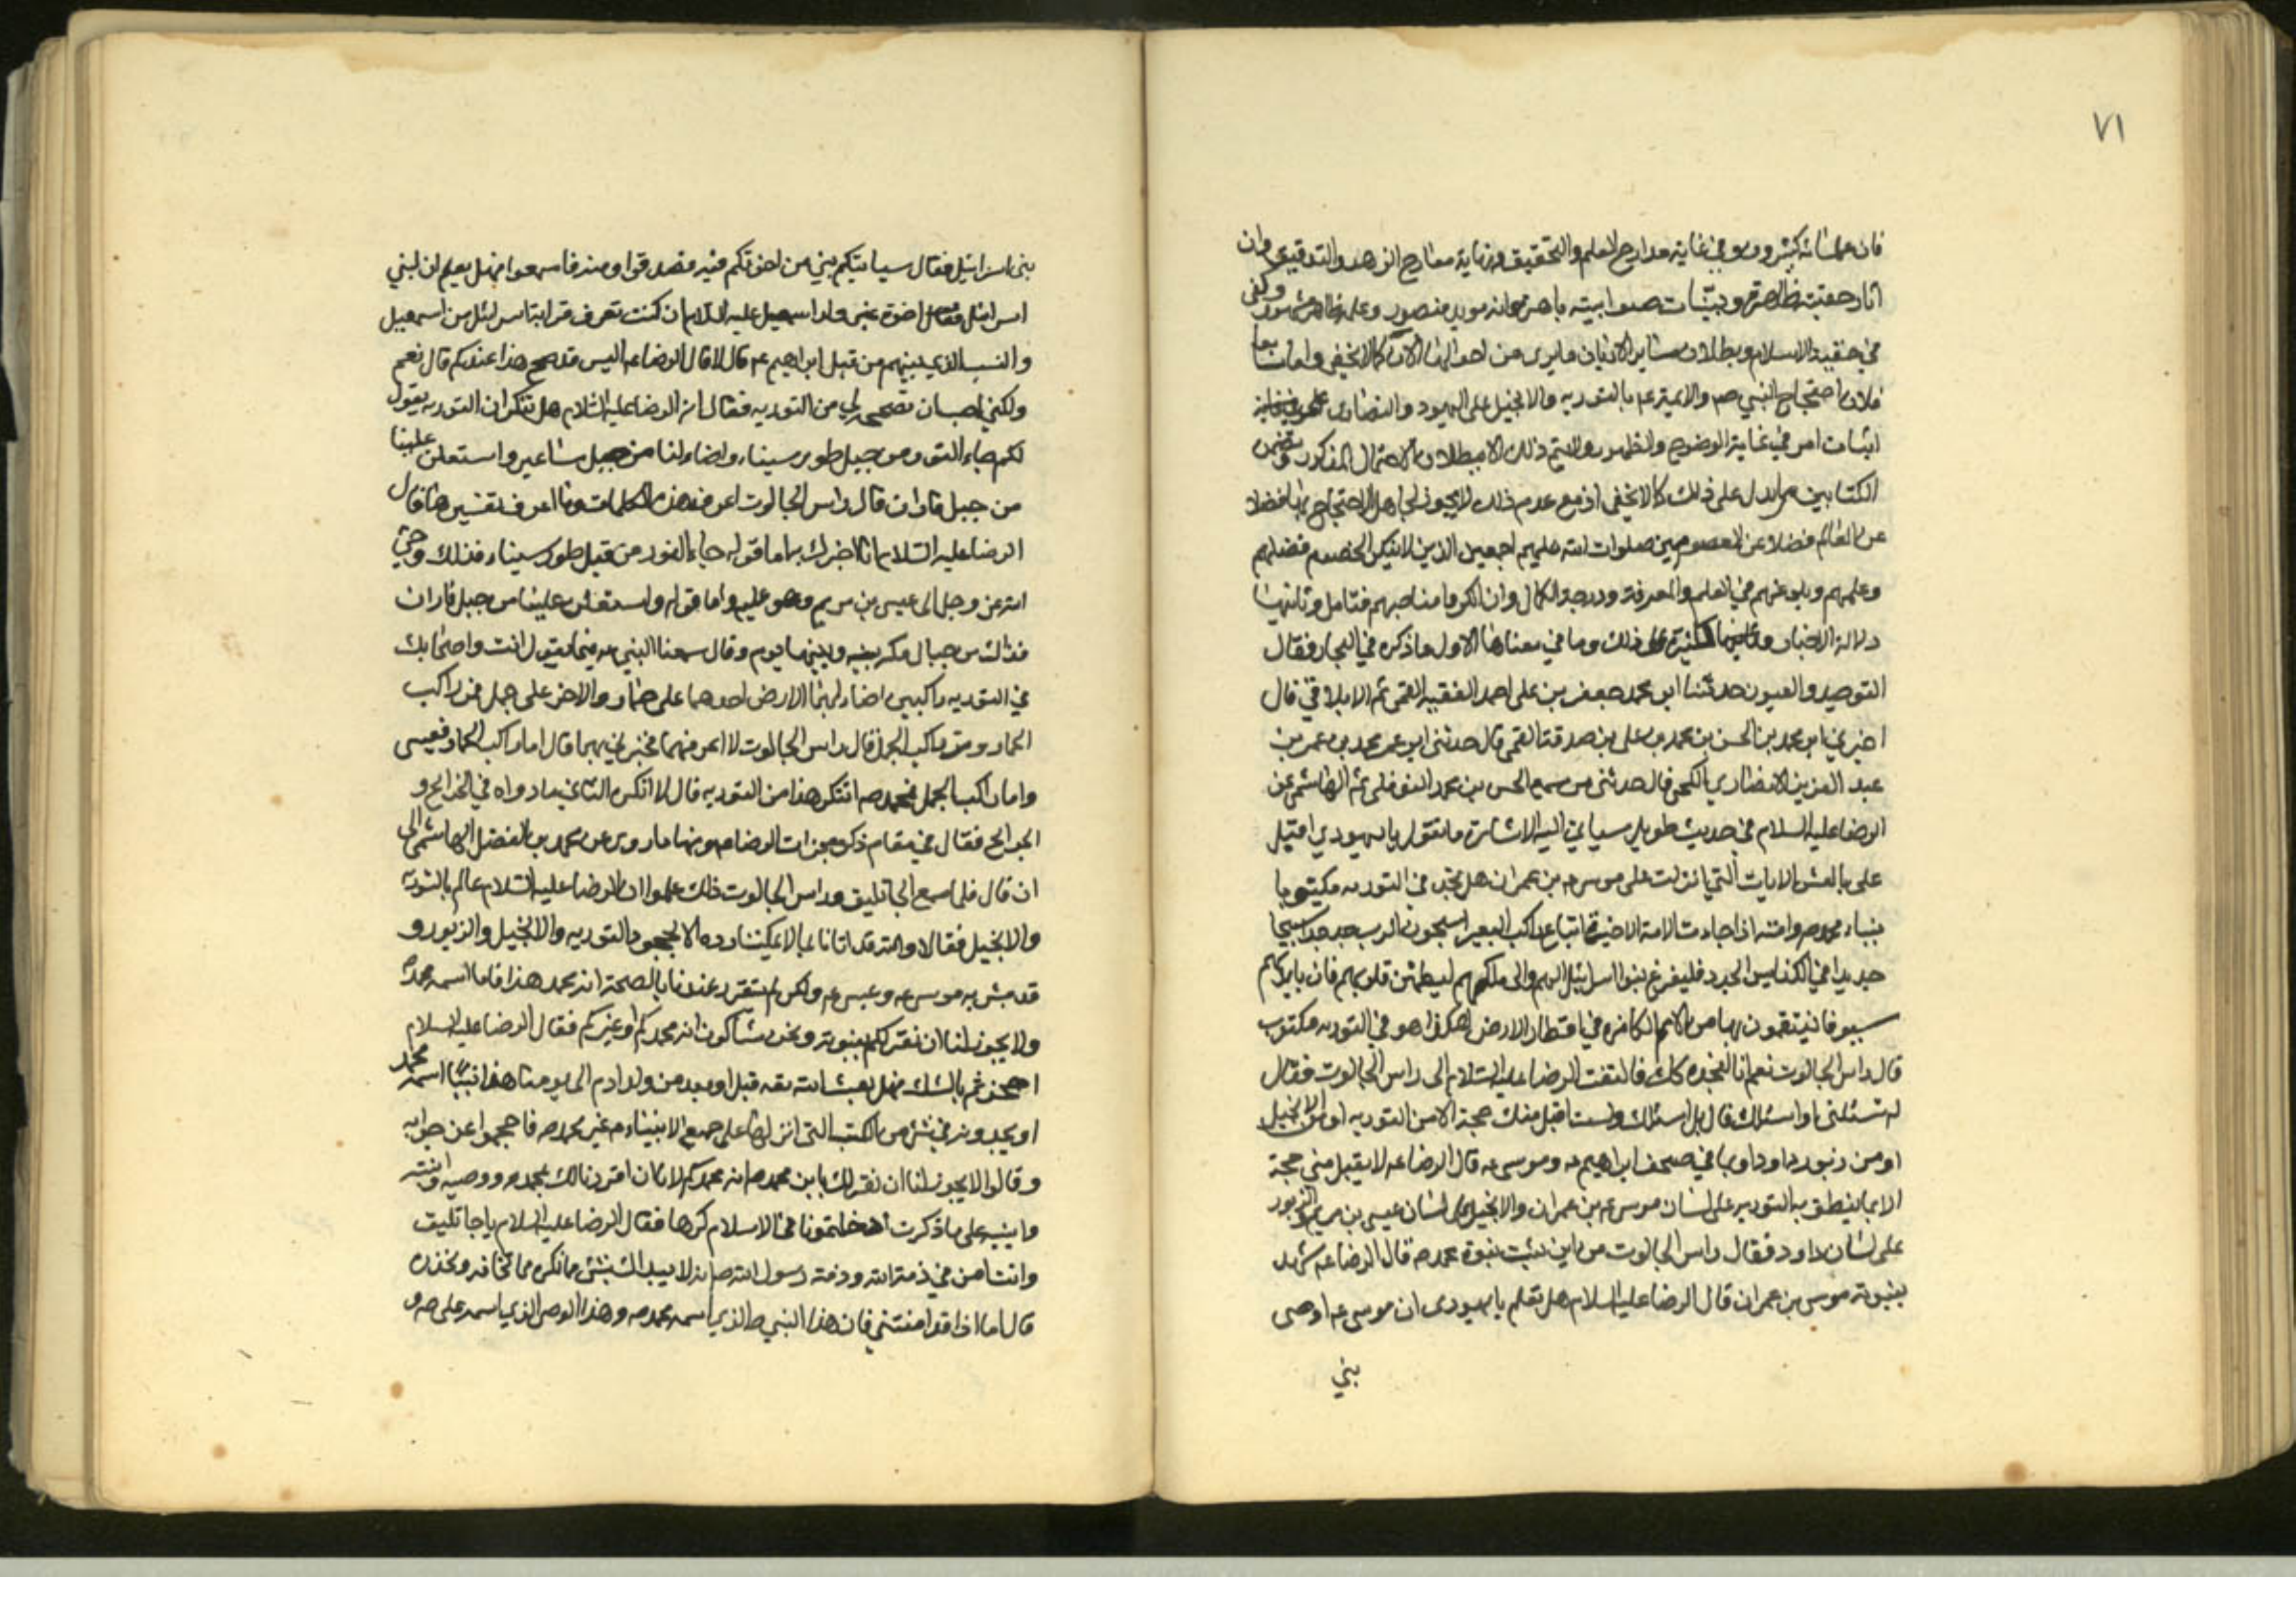 ٧١
فان علمائه كثيرون وفي غاية مدارج العلم والتحقيق ونهاية معارج الزهد والتدقيق وان
اثار حقيته ظاهرة وبينات صواببيته باهرة وانه مويد منصور وعلى ظاهر مشهور وكفى
في حقية الاسلام وبطلان ساير الاديان ما يرى من احوالها الان كما لا يخفى واما رابعا
فلان احتجاج النبي ص والايمة ع بالتورية والانجيل على اليهود والنصارى
اثبات امر في غاية الوضوح والظهور ولا يتم ذلك الا ببطلان الاحتمال المذكور وتضمن
الكتابين مما يدل على ذلك كما لا يخفى اذ مع عدم ذلك لا يجوز لجاهل الاحتجاج بها فضلا
عن العالم فضلا عن المعصومين صلوات الله عليهم اجمعين الذين لا ينكر الخصوم فضلهم
وعلمهم وبلوغهم في العلم والمعرفة ودرجة الكمال وان انكروا مناصبهم فتامل وثانيها
دلالة الاخبار على ذلك وما في معناها الاول ما ذكره في البحار فقال
التوحيد والعيون حدثنا ابو محمد جعفر بن على احمد الفقيه القمى ثم الايلاقي قال
اخبرني ابو محمد بن الحسن بن محمد بن على بن صدقة القمى قال حدثنى ابو عمر محمد بن عمر بن
عبد العزيز الانصاري الكجى قال حدثنى من سمع الحسن بن محمد النوفلى ثم الهاشمى عن
الرضا عليه السلام في حديث طويل سياتي اليه الاشارة ما نقول يا يهودي اقبل
على بالعشر الايات التي انزلت على موسى ع بن عمران هل تجد في التورية مكتوبا
بنباء محمد ص وامته اذا جاءت الامة الاخيرة اتباع راكب البعير يسبحون الرب جدا جدا تسبيحا
جديدا في الكنايس الجدد فليفرغ بنوا اسرائيل اليهم والى ملكهم ليطمئن قلوبهم فان بايديهم
سيوفا ينتقمون بها من الامم الكافره في اقطار الارض اهكذا هو في التورية مكتوب
قال راس الجالوت نعم انا لنجده كك فالتفت الرضا عليه السلام الى راس الجالوت فقال
له تسئلنى او اسئلك قال بل اسئلك ولست اقبل منك حجة الا من التورية او من الانجيل
او من زبور داود او بما في صحف ابراهيم ع وموسى ع قال الرضا ع لا يقبل مني حجة
الا بما ينطق به التورية على لسان موسى ع بن عمران والانجيل على لسان عيسى بن مريم والزبور
على لسان داود فقال راس الجالوت من اين تثبت نبوة محمد ص قال الرضا ع شهد
بنبوته موسى بن عمران قال الرضا عليه السلام هل تعلم يا يهودى ان موسى ع اوصى
بني
بنى اسرائيل فقال سياتيكم نبي من اخوتكم فيه فصدقوا ومنه فاسمعوا فهل يعلم ان لبني
اسرائيل فقال اخوة غير ولد اسمعيل عليه السلام ان كنت تعرف قرابة اسرائل من اسمعيل
والنسب الذي بينهم من قبل ابراهيم ع قال لا قال الرضا ع اليس قد صح هذا عندكم قال نعم
ولكني احب ان تصححه لي من التورية فقال له الرضا عليه السلام هل تنكر ان التورية يقول
لكم جاء النور من جبل طور سيناء واضاء لنا من جبل ساعير واستعلن علينا
من جبل فاران قال راس الجالوت اعرف هذه الكلمات وما اعرف تفسيرها قال
الرضا عليه السلام انا اخبرك به اما قوله جاء النور من قبل طور سيناء فذلك وحي
الله عز وجل الى عيسى بن مريم وهو عليه واما قوله واستعلن علينا من جبل فاران
فذلك من جبال مكة بينه وبينها يوم وقال سمعنا النبي ص فيما تقول انت واصحابك
في التورية راكبين اضاء لهما الارض احدهما على حمار والاخر على جمل فمن راكب
الحمار ومن راكب الجمل قال راس الجالوت لا اعرفهما فخبرني بهما قال اما راكب الحمار فعيسى
واما راكب الجمل فمحمد ص اتنكر هذا من التورية قال لا انكره الثاني ما رواه في الخرايج و
الجرايح فقال في مقام ذكر معجزات الرضا ع ومنها ما روى عن محمد بن الفضل الهاشمى الى
ان قال فلما سمع الجاثليق وراس الجالوت ذلك علموا ان الرضا عليه السلام عالم بالتورية
والانجيل فقالا والله قد اتانا بما لا يمكننا رده الا بجحود التورية والانجيل والزبور و
قد بشر به موسى ع وعيسى ع ولكن لم يتقرر عندنا بالصحة انه محمد هذا فاما اسمه محمد ص
ولا يجوز لنا ان نقر لكم بنبوته ونحن شاكون انه محمدكم او غيركم فقال الرضا عليه السلام
احججتم بالشك فهل بعث الله بعد قبل او بعد من ولد ادم الى يومنا هذا نبيا اسمه محمد
او تجدونه في شئ من الكتب التى انزلها على جميع الانبياء م غير محمد ص فاحجموا عن جوابه
وقالوا لا يجوز لنا ان نقر لك بان محمد ص انه محمدكم لانا ان اقررنا لك بمحمد ص ووصيه وابنته
وابنيه على ما ذكرت ادخلتمونا في الاسلام كرها فقال الرضا عليه السلام يا جاثليق
وانت امن في ذمة الله وذمة رسول الله ص انه لا يبدئك بشئ مما تكره مما تخافه وتحذره
قال اما اذا قد امنتنى فان هذا النبي ص الذي اسمه محمد ص وهذا الوصى الذي اسمه على ص و